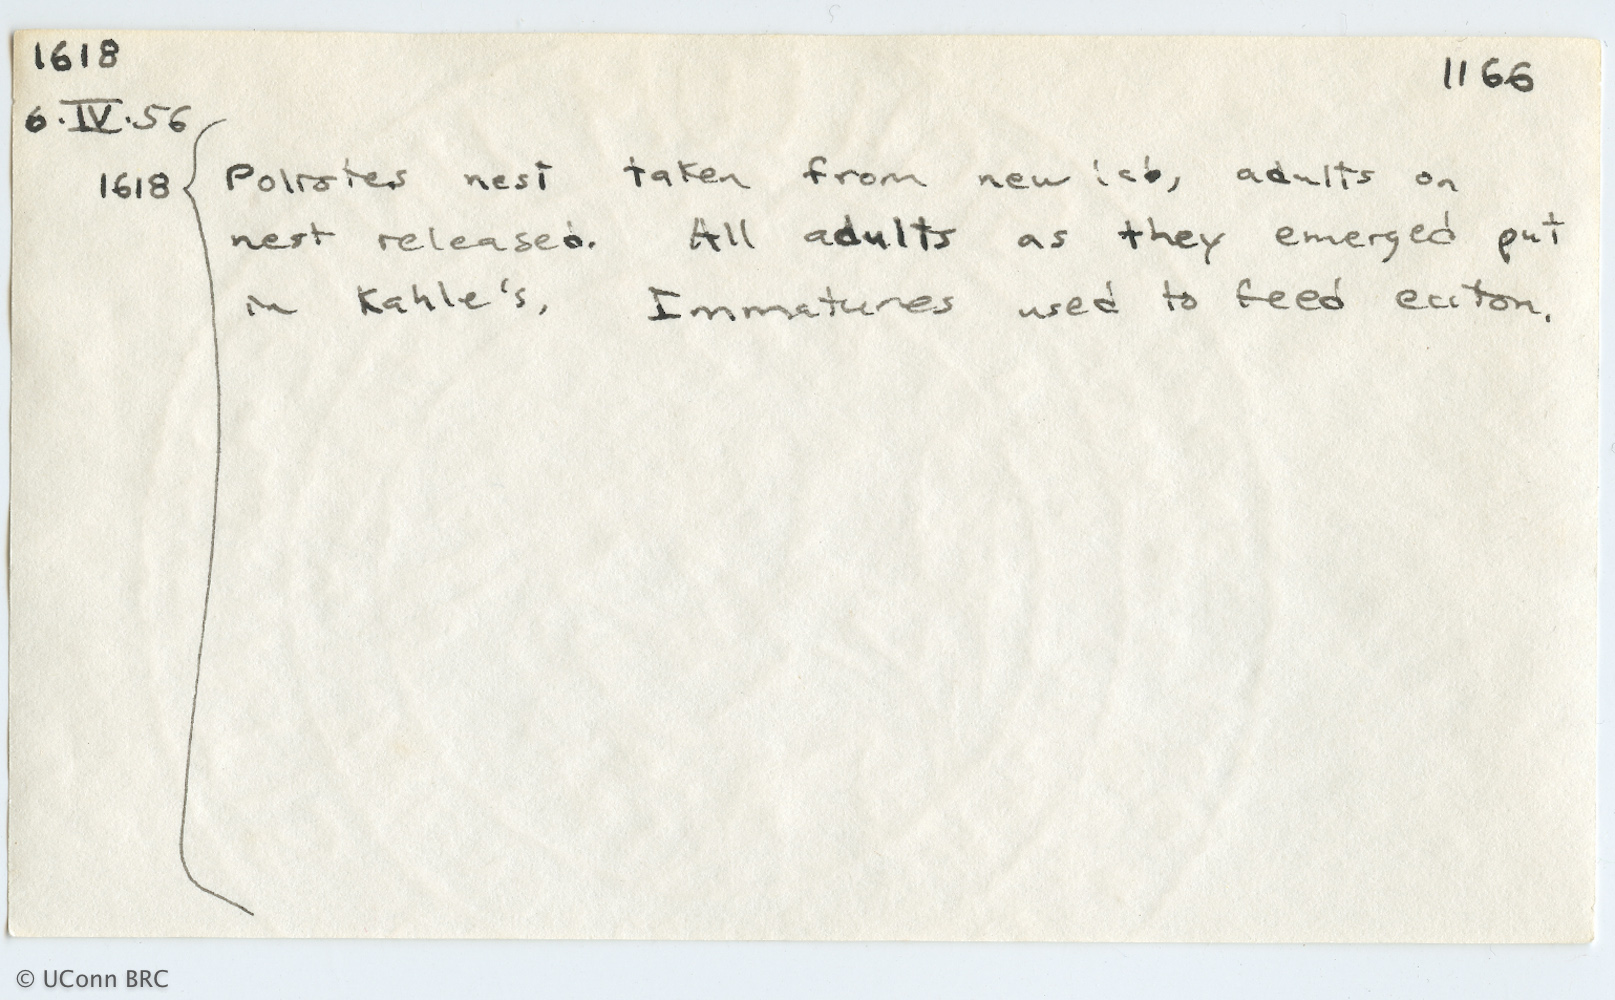 1618
1166
6.IV.56
1618 { Polistes nest taken from new lab, adults on
nest released. All adults as they emerged put
in Kahle's, Immatures used to feed eciton.
© UConn BRC